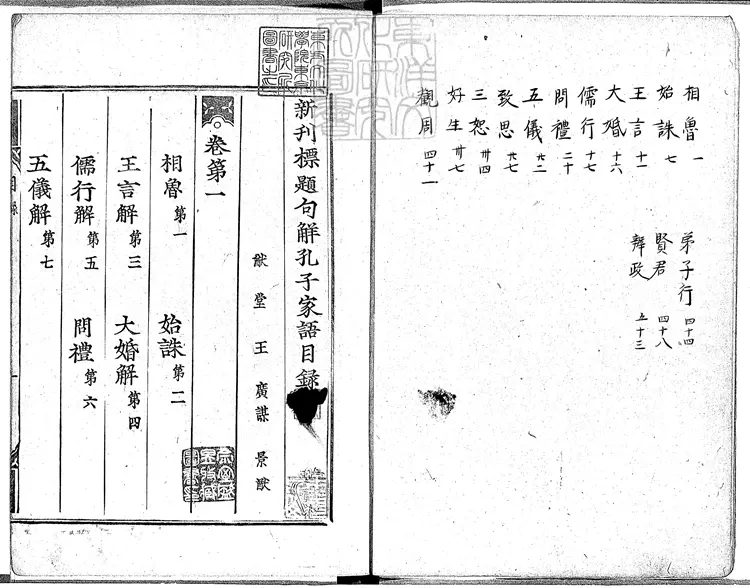 相魯 一
始誅 七
王言 十一
大婚 十六
儒行 十七
問禮 二十
五儀 廿二
致思 廿七
三恕 卅四
好生 卅七
觀周 四十一
弟子行 四十四
賢君 四十八
辯政 五十三
新刊標題句解孔子家語目錄
猷堂 王 廣謀 景猷
卷第一
相魯第一 始誅第二
王言解第三 大婚解第四
儒行解第五 問禮第六
五儀解第七